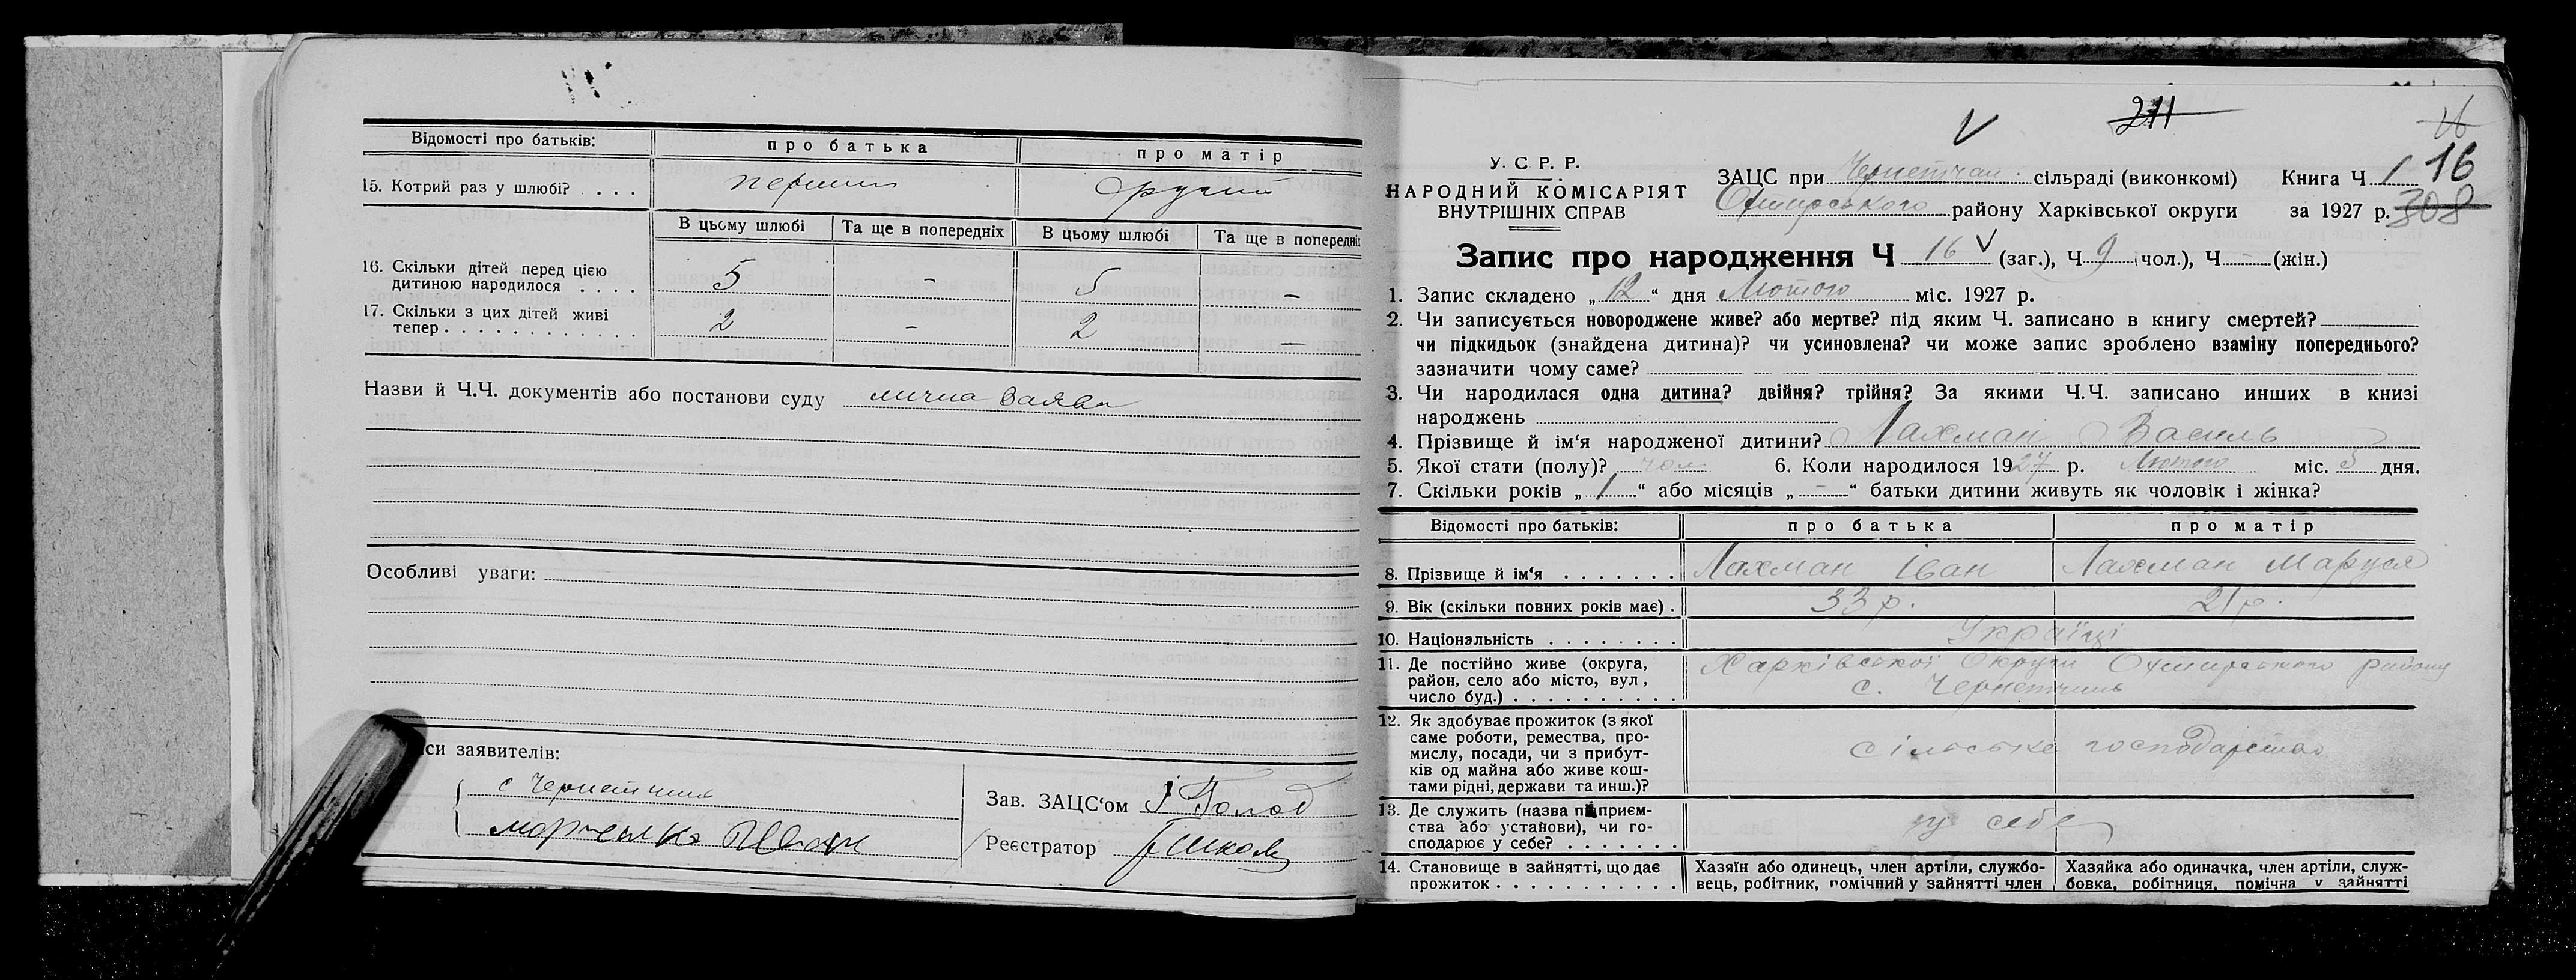 Відомості про батьків: про батька про матір
15. Котрий раз у шлюбі? . . . . перший другий
В цьому шлюбі Та ще в попередніх В цьому шлюбі Та ще в попередніх
16. Скільки дітей перед цією
дитиною народилося . . . . 5 - 5 -
17. Скільки з цих дітей живі
тепер . . . . . . . . . . . . 2 - 2 -
Назви й Ч.Ч. документів або постанови суду лична заява
Особливі уваги:
си заявителів:
с Чернетчина
Марченко Іван
Зав. ЗАЦС'ом
Реєстратор
211
16
У. С. Р. Р.
НАРОДНИЙ КОМІСАРІЯТ
ВНУТРІШНІХ СПРАВ
ЗАЦС при Чернетчан. сільраді (виконкомі) Книга Ч 1 16
Охтирського району Харківської округи за 1927 р. 308
Запис про народження Ч 16 (заг.), Ч 9 (чол.), Ч - (жін.)
1. Запис складено „ 12 “ дня Лютого міс. 1927 р.
2. Чи записується новороджене живе? або мертве? під яким Ч. записано в книгу смертей?
чи підкидьок (знайдена дитина)? чи усиновлена? чи може запис зроблено взаміну попереднього?
зазначити чому саме?
3. Чи народилася одна дитина? двійня? трійня? За якими Ч.Ч. записано инших в книзі
народжень
4. Прізвище й ім'я народженої дитини? Лахман Василь
5. Якої стати (полу)? чол. 6. Коли народилося 1927 р. Лютого міс. 5 дня.
7. Скільки років „ 1 “ або місяців „ - “ батьки дитини живуть як чоловік і жінка?
Відомості про батьків: про батька про матір
8. Прізвище й ім'я . . . . . . . Лахман Іван Лахман Маруся
9. Вік (скільки повних років має) . 33 р. 21 р.
10. Національність . . . . . . . . Українці
11. Де постійно живе (округа, Харківської Округи Охтирського району
район, село або місто, вул., с. Чернетчина
число буд.) . . . . . . . . . . .
12. Як здобуває прожиток (з якої
саме роботи, ремества, про-
мислу, посади, чи з прибут- сільське господарство
ків од майна або живе кош-
тами рідні, держави та инш.)?
13. Де служить (назва підприєм-
ства або установи), чи го- у себе
сподарює у себе? . . . . . . .
14. Становище в зайнятті, що дає Хазяїн або одинець, член артіли, службо- Хазяйка або одиначка, член артіли, служ-
прожиток . . . . . . . . . . . . вець, робітник, помічний у зайнятті член бовка, робітниця, помічна у зайнятті